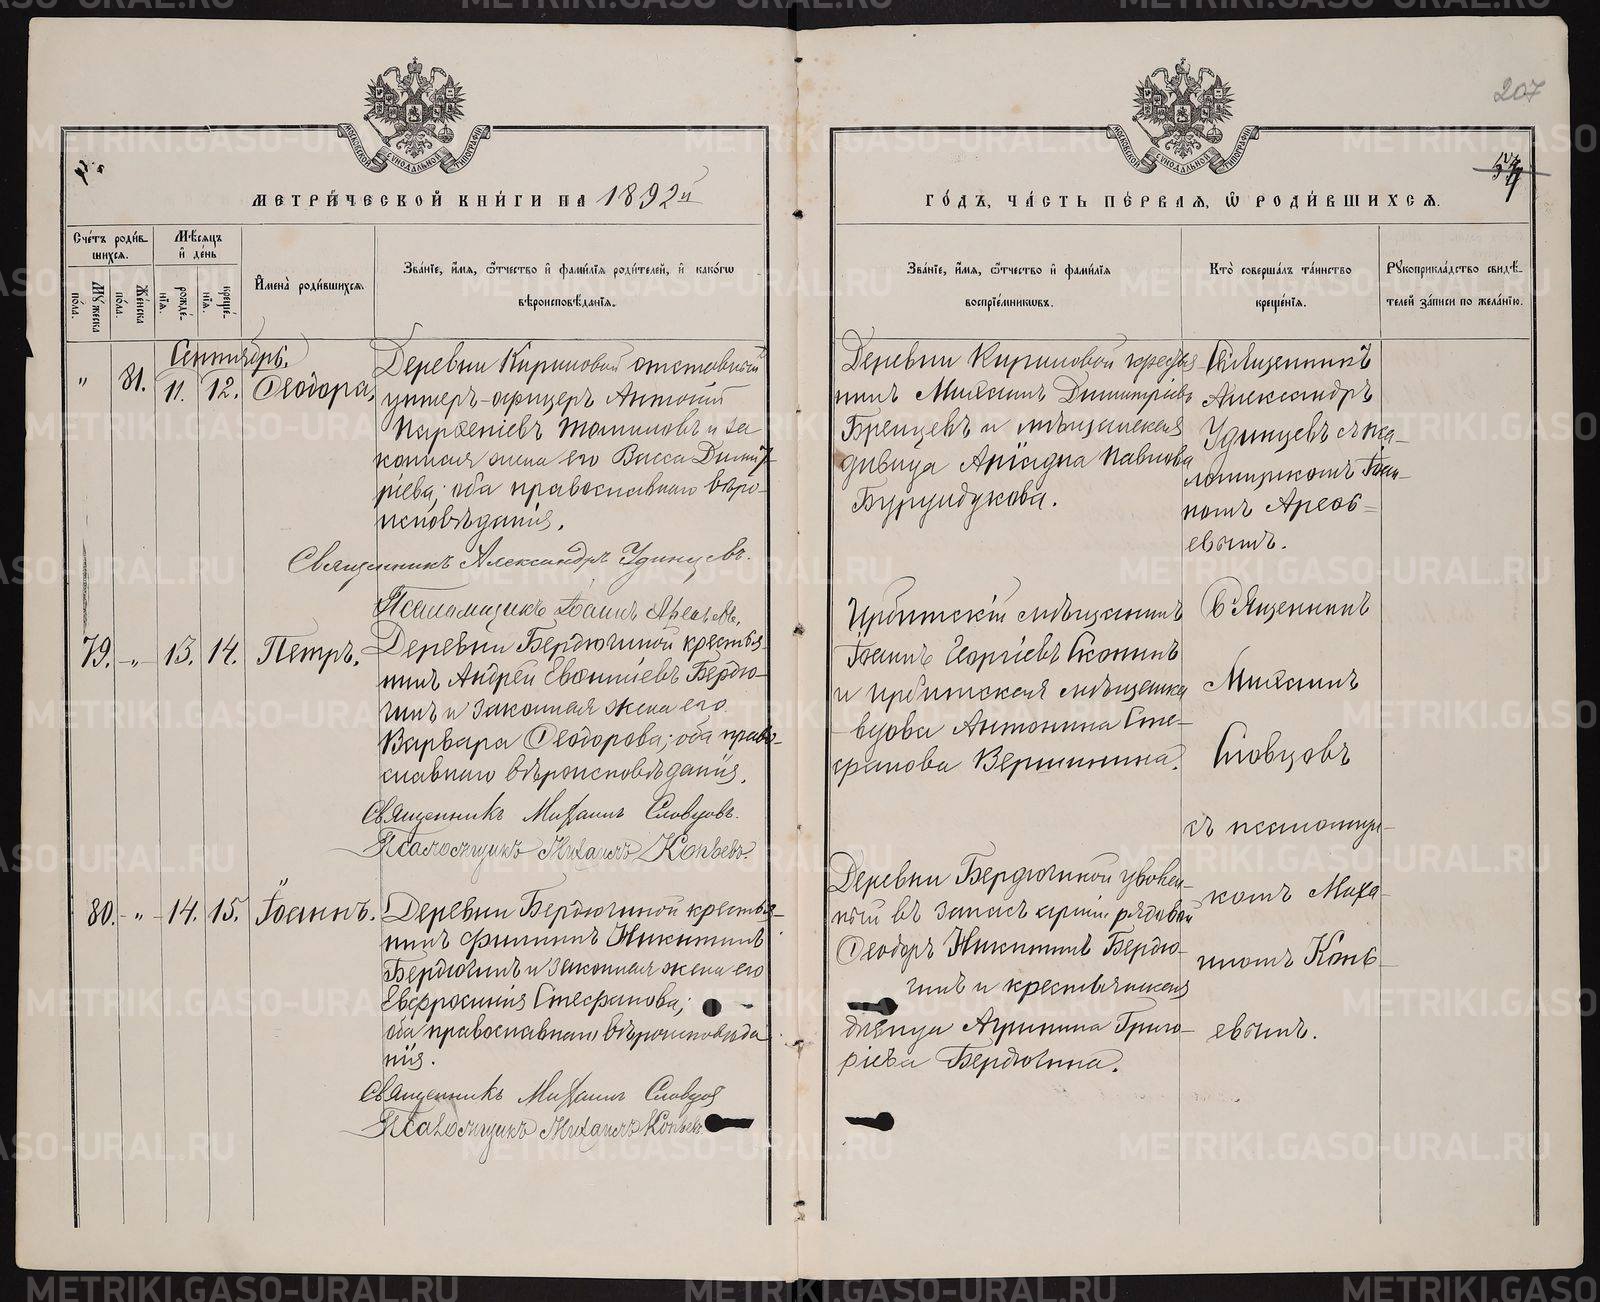 207
МЕТРИ́ЧЕСКОЙ КНИ́ГИ НА 1892й
ГО́ДЪ, ЧА́СТЬ ПЕ́РВАЯ, Ѽ РОДИ́ВШИХСЯ.
Сче́тъ роди́в-
шихся.
Му́жеска
пола.
Же́нска
по́ла.
Мѣ́сяцъ
и́ де́нь
рожде́-
нїѧ.
креще́-
нїѧ.
И҆мена̀ роди́вшихся.
Зва́нїе, и҆́мѧ, ѻ҆́тчество и҆ фами́лїѧ роди́телей, и҆ како́гѡ
вѣроисповѣ́данїѧ.
Зва́нїе, и҆́мѧ, ѻ҆́тчество и҆ фами́лїѧ
воспрїе́мниковъ.
Кто̀ соверша́лъ та́инство
креще́нїѧ.
Рꙋкоприкла́дство свидѣ́-
телей за́писи по жела́нїю.
Сентябрь.
" 81. 11. 12. Ѳеодора.
Деревни Кириловой отставный
унтеръ-офицеръ Антоній
Парѳеніевъ Томиловъ и за
конная жена его Васса Димит
ріева; оба православнаго вѣро-
исповѣданія.
Священникъ Александръ Удинцевъ.
Псаломщикъ Іоаннъ Арефьевъ.
Деревни Кириловой крестья
нинъ Михаилъ Димитріевъ
Бренцевъ и мѣщанская
дѣвица Аріадна Павлова
Бурундукова.
Священникъ
Александръ
Удинцевъ съ пса-
ломщикомъ Іоан-
номъ Ареф-
евымъ.
79. -"- 13. 14. Петръ.
Деревни Бердюгиной крестья
нинъ Андрей Евѳиміевъ Бердю-
гинъ и законная жена его
Варвара Ѳеодорова; оба право-
славнаго вѣроисповѣданія.
Священникъ Михаилъ Словцовъ.
Псаломщикъ Михаилъ Копьевъ.
Ирбитскій мѣщанинъ
Іоаннъ Георгіевъ Скопинъ
и ирбитская мѣщанка
вдова Антонина Сте-
фанова Вершинина.
Священникъ
Михаилъ
Словцовъ
съ псаломщи-
комъ Миха-
иломъ Копь-
евымъ.
80. -"- 14. 15. Іоаннъ.
Деревни Бердюгиной крестья-
нинъ Филиппъ Никитинъ
Бердюгинъ и законная жена его
Евфросинія Стефанова;
оба православнаго вѣроисповѣда
нія.
Священникъ Михаилъ Словцовъ
Псаломщикъ Михаилъ Копьевъ
Деревни Бердюгиной уволен-
ный въ запасъ арміи рядовой
Ѳеодоръ Никитинъ Бердю-
гинъ и крестьянская
дѣвица Агрипина Григо-
ріева Бердюгина.
METRIKI.GASO-URAL.RU